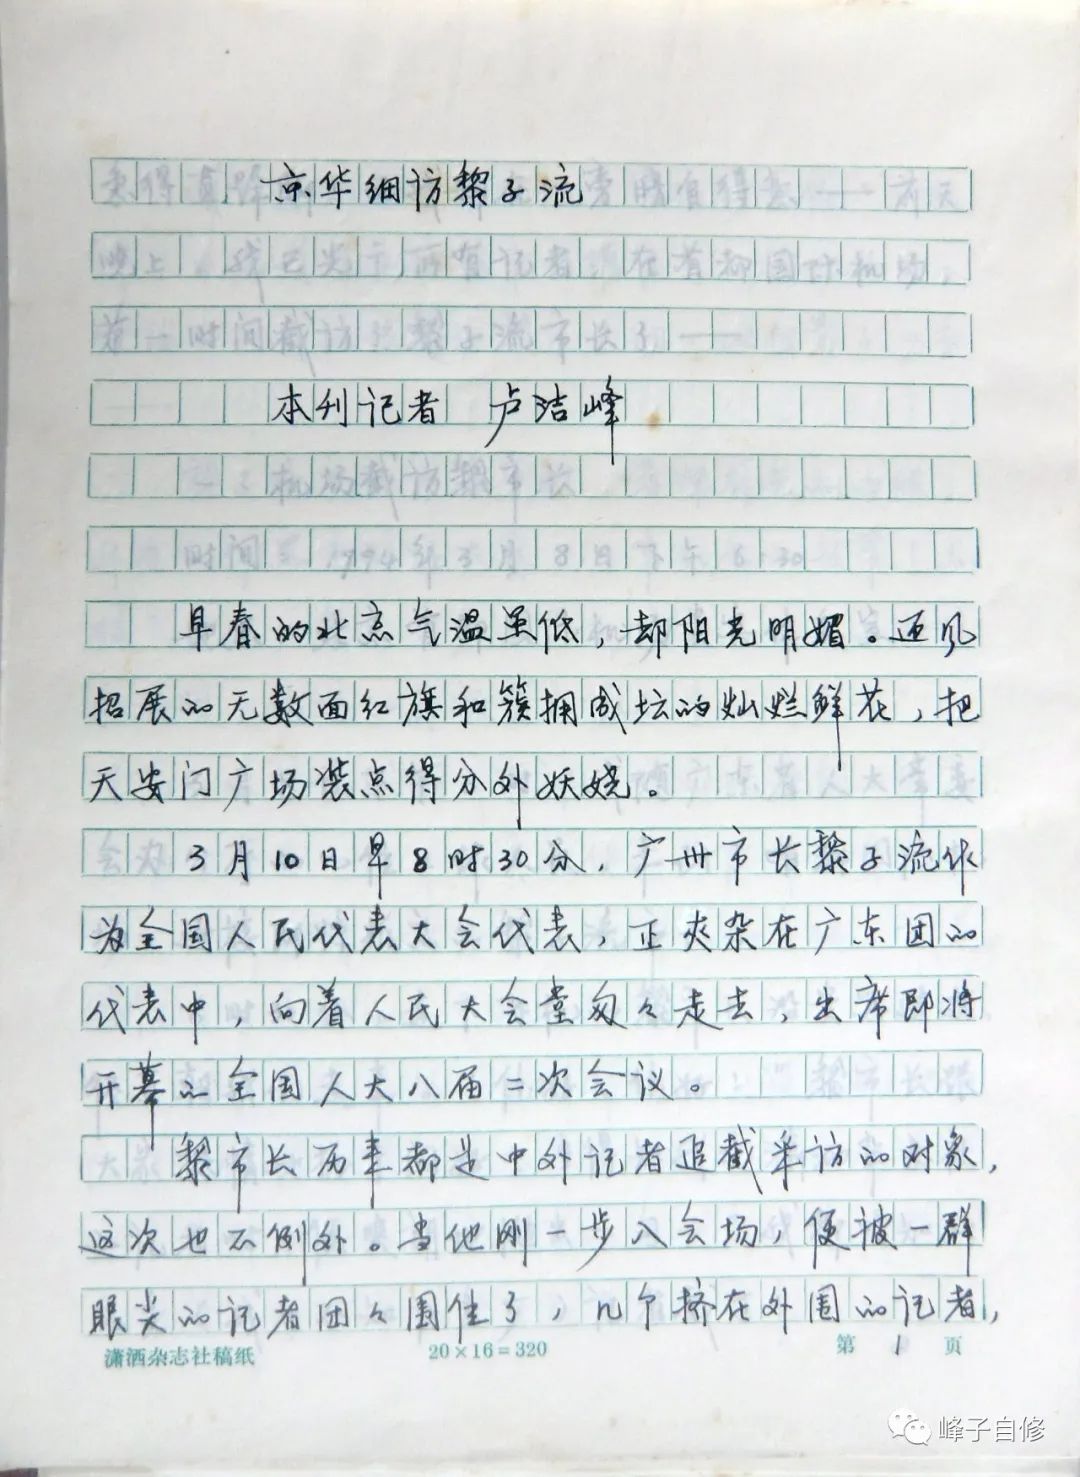 京华细访黎子流
本刊记者 卢洁峰
早春的北京气温虽低，却阳光明媚。迎风
招展的无数面红旗和簇拥成坛的灿烂鲜花，把
天安门广场装点得分外妖娆。
3月10日早8时30分，广州市长黎子流作
为全国人民代表大会代表，正夹杂在广东团的
代表中，向着人民大会堂匆々走去，出席即将
开幕的全国人大八届二次会议。
黎市长历来都是中外记者追截采访的对象，
这次也不例外。当他刚一步入会场，便被一群
眼尖的记者团々围住了，几个挤在外围的记者，
潇洒杂志社稿纸 20×16=320 第 1 页
峰子自修